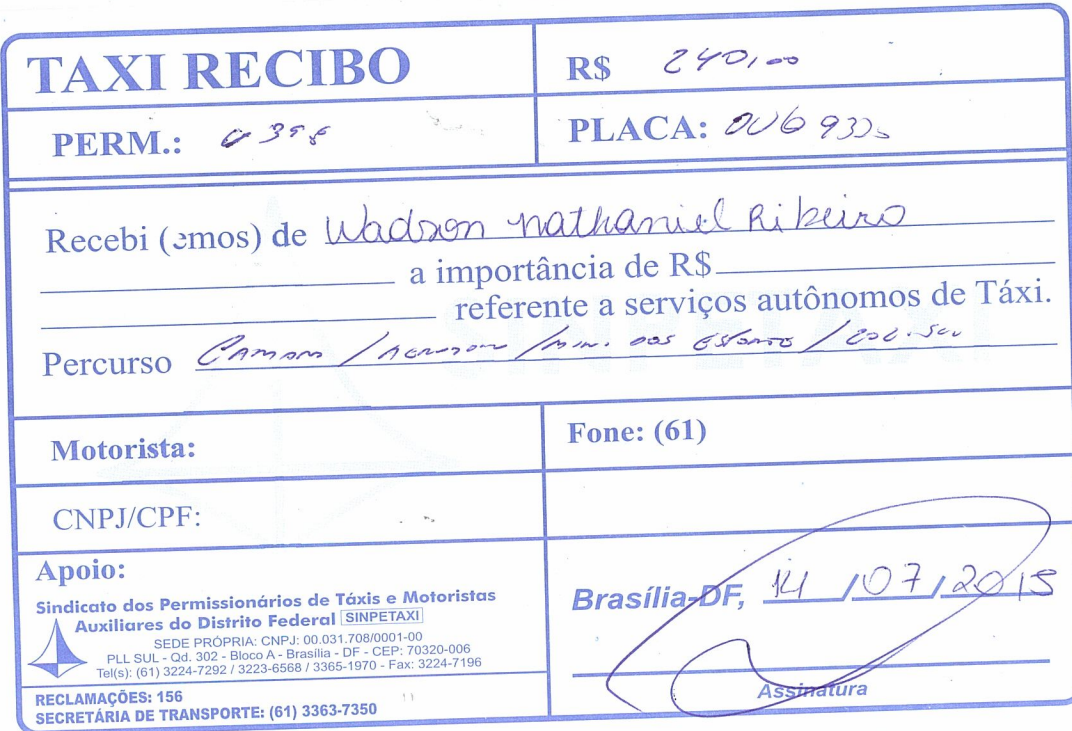 TAXI RECIBO
R$ 240,00
PERM.:
PLACA: OVG 933
Recebi (emos) de Wadson nathaniel Ribeiro
a importância de R$
referente a serviços autônomos de Táxi.
Percurso
Motorista:
Fone: (61)
CNPJ/CPF:
Apoio:
Sindicato dos Permissionários de Táxis e Motoristas
Auxiliares do Distrito Federal SINPETAXI
SEDE PRÓPRIA: CNPJ: 00.031.708/0001-00
PLL SUL - Qd. 302 - Bloco A - Brasília - DF - CEP: 70320-006
Tel(s): (61) 3224-7292 / 3223-6568 / 3365-1970 - Fax: 3224-7196
RECLAMAÇÕES: 156
SECRETÁRIA DE TRANSPORTE: (61) 3363-7350
Brasília-DF, 14/07/2015
Assinatura